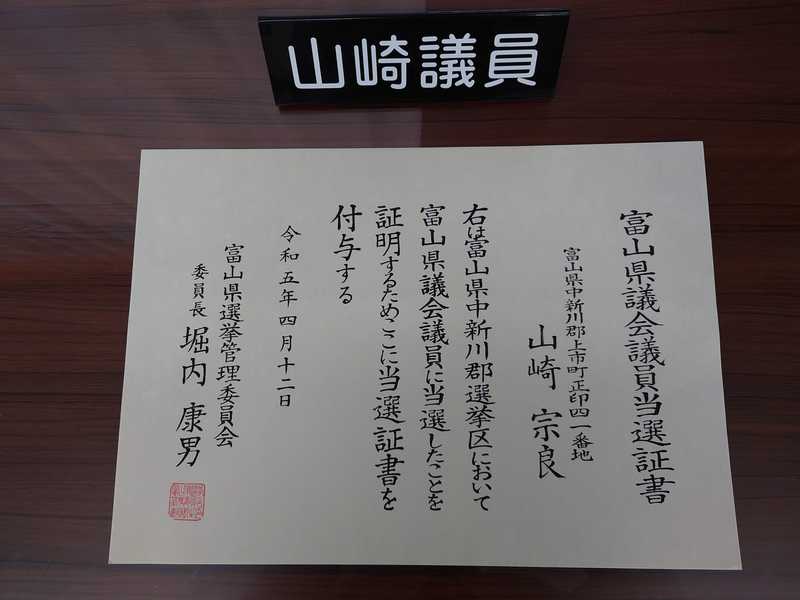 山崎議員
富山県議会議員当選証書
富山県中新川郡上市町正印四一番地
山崎 宗良
右は富山県中新川郡選挙区において
富山県議会議員に当選したことを
証明するためここに当選証書を
付与する
令和五年四月十二日
富山県選挙管理委員会
委員長 堀内 康男